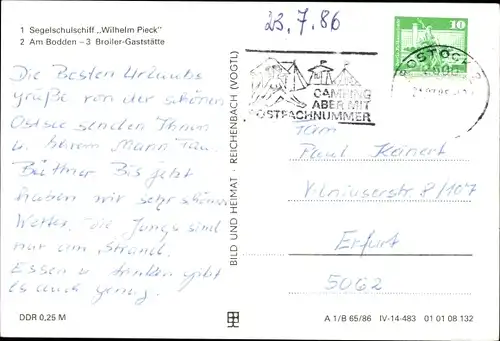 1 Segelschulschiff „Wilhelm Pieck"
2 Am Bodden – 3 Broiler-Gaststätte
23.7.86
10
ROSTOCK
CAMPING
ABER MIT
POSTFACHNUMMER
Die Besten Urlaubs
grüße von der schönen
Ostsee senden Ihnen
u. Mann Fam.
Büttner Bis jetzt
haben wir sehr schönes
Wetter, die Jungs sind
nur am Strand.
Essen u. trinken gibt
es auch genug.
BILD UND HEIMAT · REICHENBACH (VOGTL)
Fam
Paul Kanert
Vilniuserstr 8/107
Erfurt
5062
DDR 0,25 M
A 1/B 65/86 IV-14-483 01 01 08 132